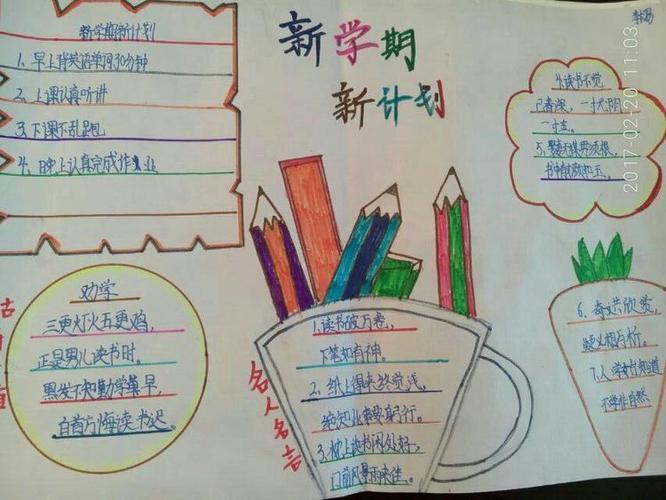 新学期
新计划
李易
新学期新计划
1、早上背英语单词30分钟
2、上课认真听讲
3、下课不乱跑
4、晚上认真完成作业
劝学
三更灯火五更鸡，
正是男儿读书时。
黑发不知勤学早，
白首方悔读书迟。
名人名言
1、读书破万卷，
下笔如有神。
2、纸上得来终觉浅，
绝知此事要躬行。
3、枕上读书闲处好，
门前风景雨来佳。
4、读书不觉
已春深，一寸光阴
一寸金。
书中
6、奇文共欣赏，
疑义相与析。
7、人学始知道
不学非自然
2017-02-20 11:03